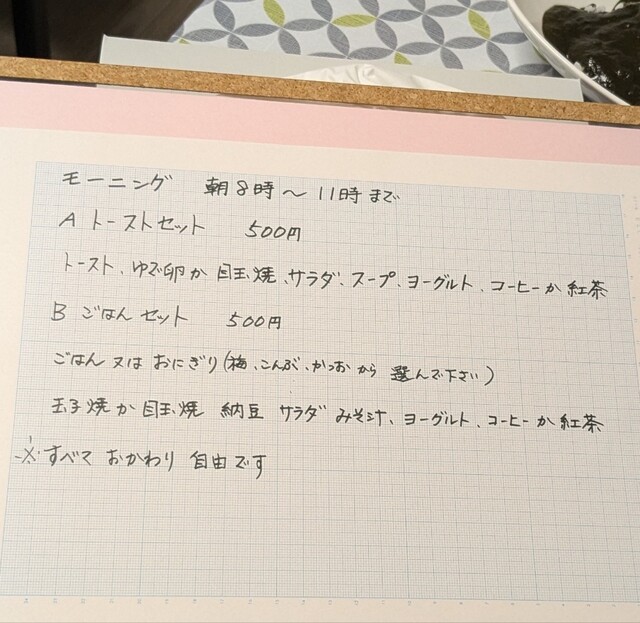 モーニング 朝8時〜11時まで
A トーストセット 500円
トースト、ゆで卵か目玉焼、サラダ、スープ、ヨーグルト、コーヒーか紅茶
B ごはんセット 500円
ごはん又はおにぎり(梅、こんぶ、かつおから選んで下さい)
玉子焼か目玉焼 納豆 サラダ みそ汁、ヨーグルト、コーヒーか紅茶
※すべておかわり自由です